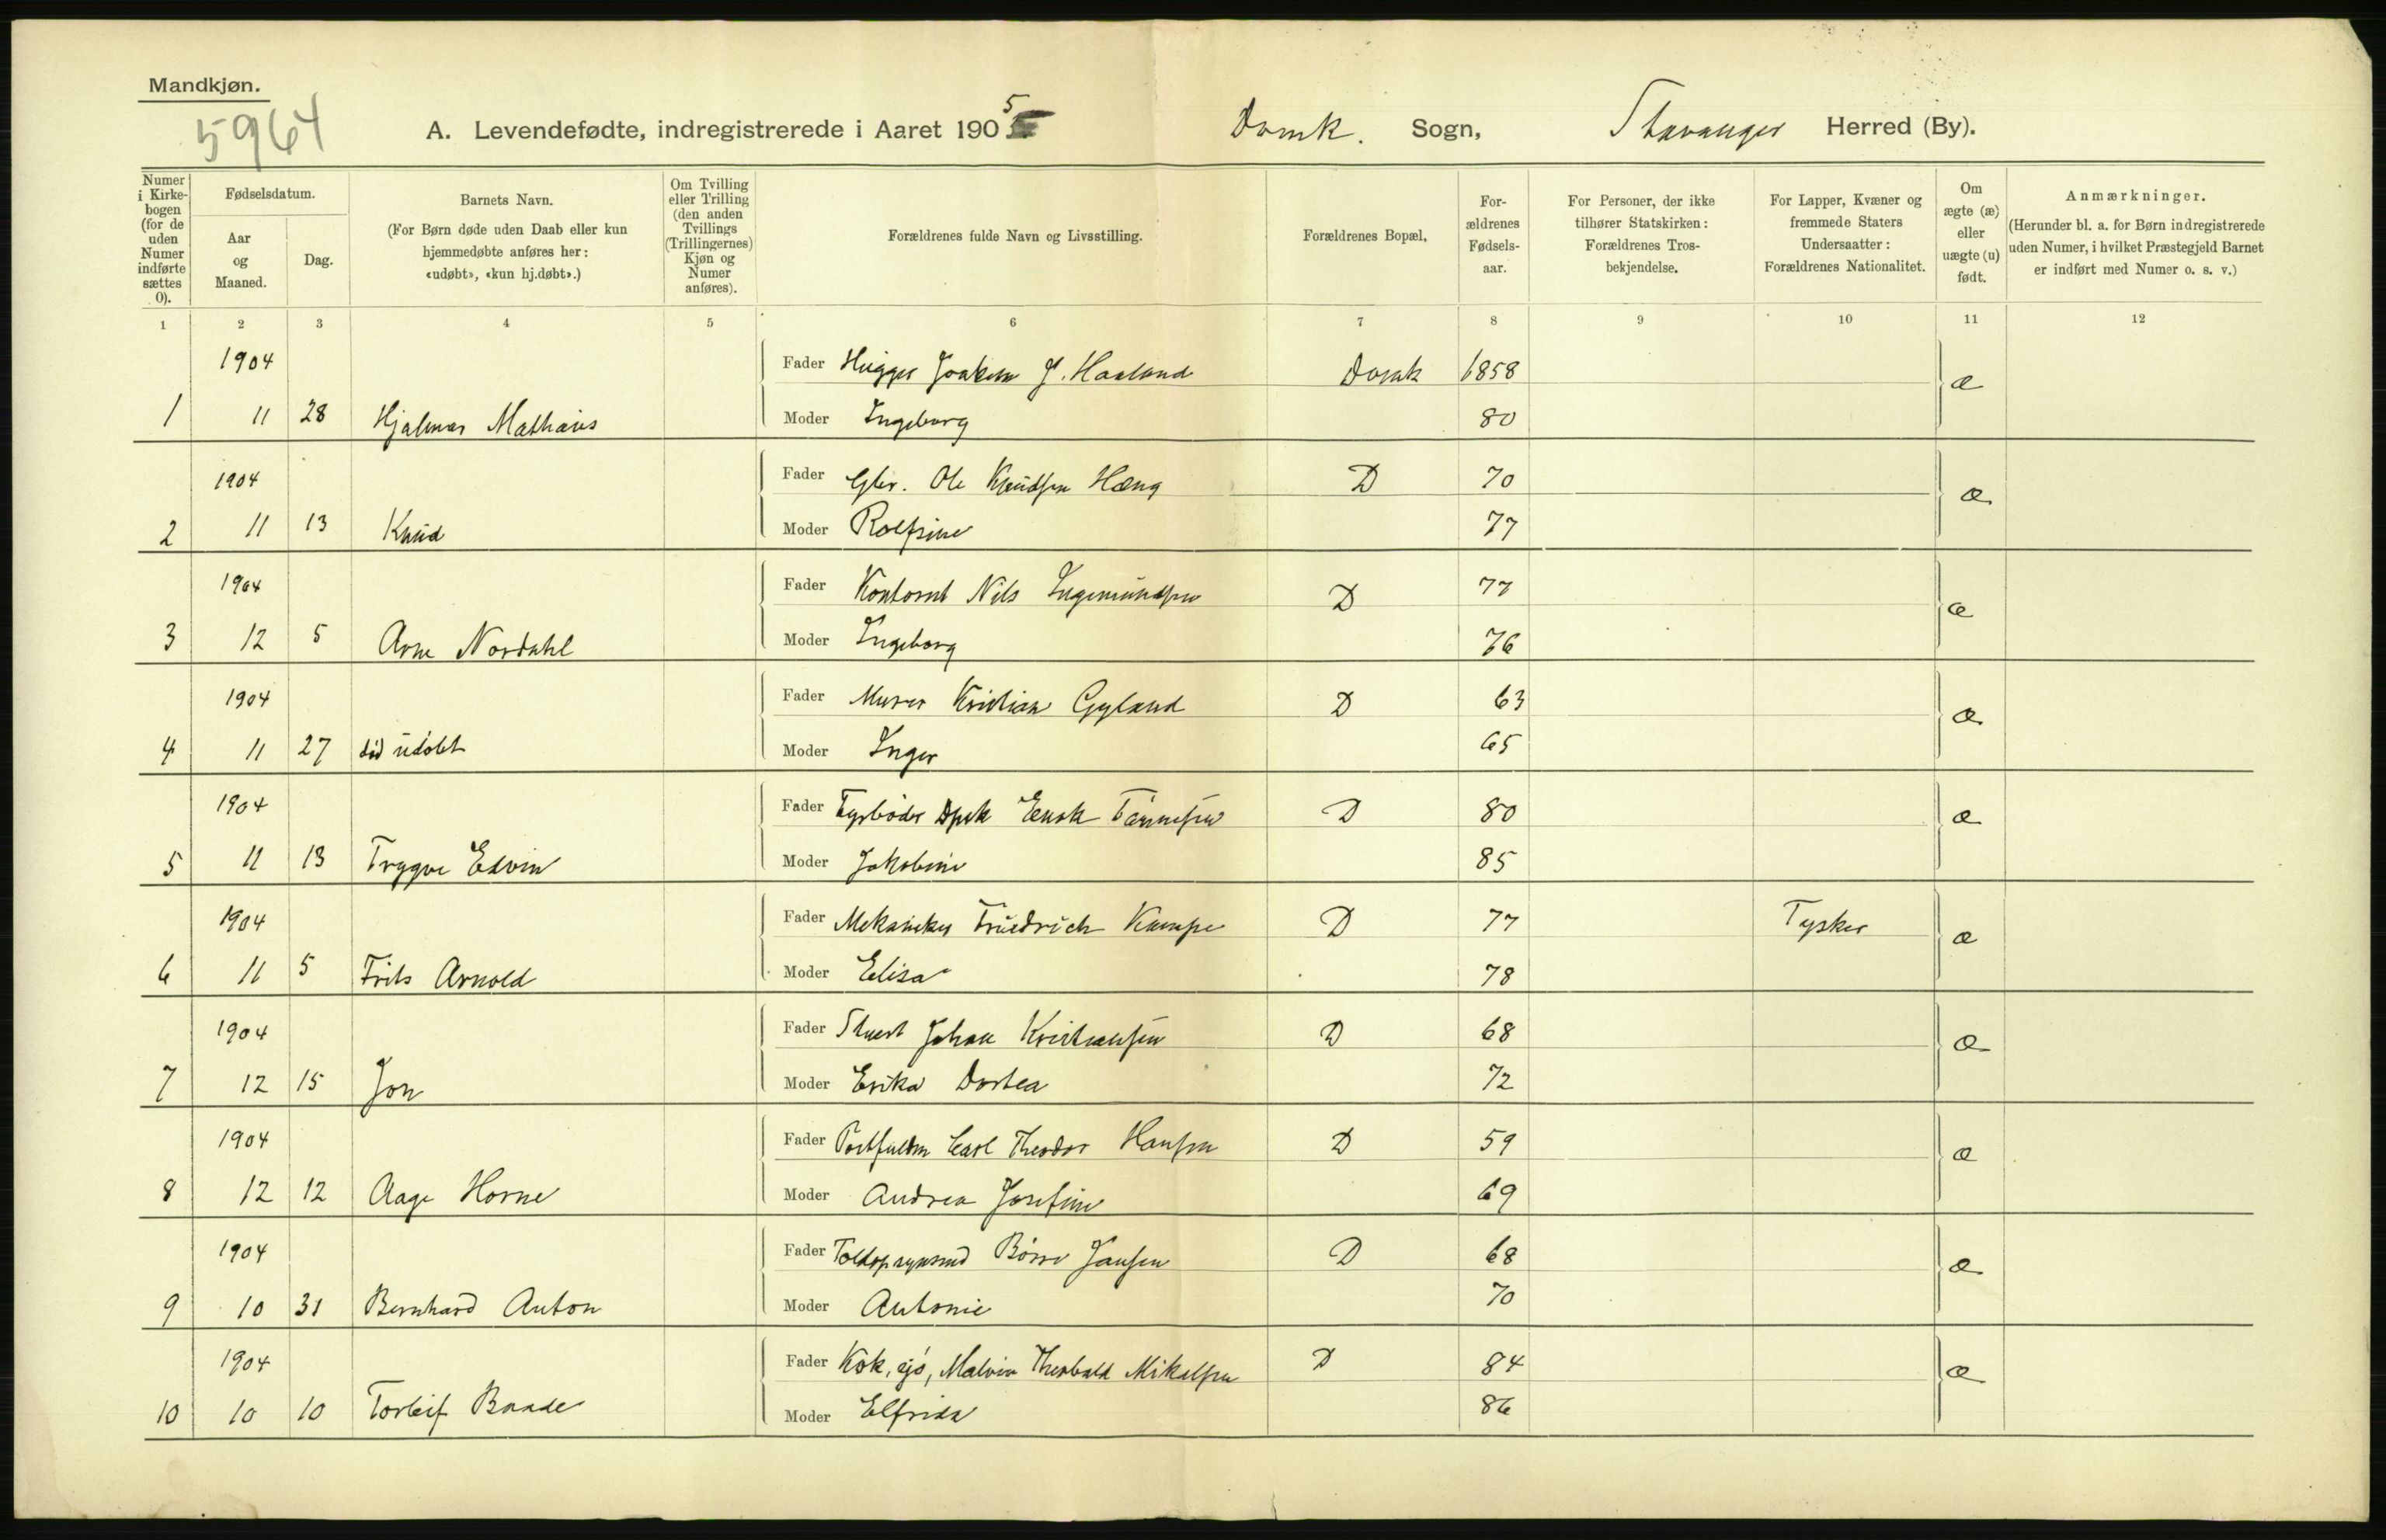 Mandkjøn.
5964
A. Levendefødte, indregistrerede i Aaret 1905 Domk. Sogn, Stavanger Herred (By).
Numer i Kirkebogen (for de uden Numer indførte sættes 0).
Fødselsdatum.
Aar og Maaned.
Dag.
Barnets Navn.
(For Børn døde uden Daab eller kun hjemmedøbte anføres her: «udøbt», «kun hj.døbt».)
Om Tvilling eller Trilling (den anden Tvillings (Trillingernes) Kjøn og Numer anføres).
Forældrenes fulde Navn og Livsstilling.
Forældrenes Bopæl,
Forældrenes Fødselsaar.
For Personer, der ikke tilhører Statskirken: Forældrenes Trosbekjendelse.
For Lapper, Kvæner og fremmede Staters Undersaatter: Forældrenes Nationalitet.
Om ægte (æ) eller uægte (u) født.
Anmærkninger.
(Herunder bl. a. for Børn indregistrerede uden Numer, i hvilket Præstegjeld Barnet er indført med Numer o. s. v.)
1 2 3 4 5 6 7 8 9 10 11 12
1904 Fader Hugger Joakim J. Haaland Domk 1858 æ
1 11 28 Hjalmar Mathæus Moder Ingeborg 80
1904 Fader Gbr. Ole Knudsen Hæng D 70 æ
2 11 13 Knud Moder Rolfsine 77
1904 Fader Kontorist Nils Ingemundsen D 77 æ
3 12 5 Arne Nordahl Moder Ingeborg 76
1904 Fader Murer Kristian Gyland D 63 æ
4 11 27 død udøbt Moder Inger 65
1904 Fader Fyrbøder Enok Tønnesen D 80 æ
5 11 13 Trygve Edvin Moder Jakobine 85
1904 Fader Mekaniker Friedrich Kampe D 77 Tysker æ
6 11 5 Frits Arnold Moder Elisa 78
1904 Fader Stuert Johan Kristiansen D 68 æ
7 12 15 Jon Moder Erika Dortea 72
1904 Fader Postfuldm Carl Theodor Hansen D 59 æ
8 12 12 Aage Horne Moder Andrea Josefine 69
1904 Fader Børre Jansen D 68 æ
9 10 31 Bernhard Anton Moder Antonie 70
1904 Fader Kok, sjø, Malvin Theobald Mikalsen D 84 æ
10 10 10 Torleif Baade Moder Elfrida 86